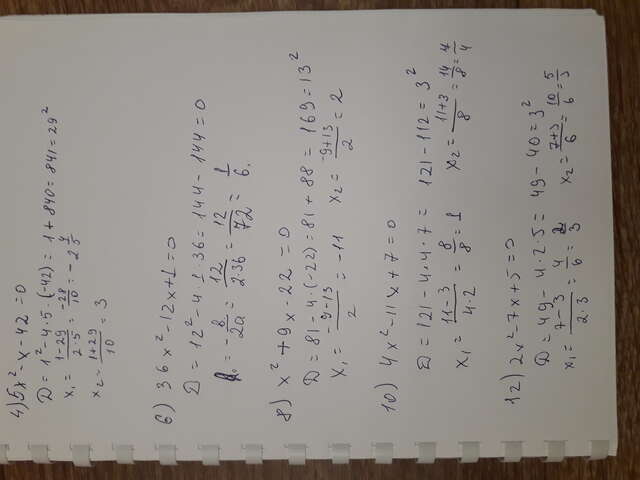 4) 5x² - x - 42 = 0
D = 1² - 4 · 5 · (-42) = 1 + 840 = 841 = 29²
x₁ = (1-29)/(2·5) = -28/10 = -2 4/5
x₂ = (1+29)/10 = 3
6) 36x² - 12x + 1 = 0
D = 12² - 4 · 1 · 36 = 144 - 144 = 0
= -b/2a = 12/(2·36) = 12/72 = 1/6.
8) x² + 9x - 22 = 0
D = 81 - 4 · (-22) = 81 + 88 = 169 = 13²
x₁ = (-9-13)/2 = -11 x₂ = (-9+13)/2 = 2
10) 4x² - 11x + 7 = 0
D = 121 - 4 · 4 · 7 = 121 - 112 = 3²
x₁ = (11-3)/(4·2) = 8/8 = 1 x₂ = (11+3)/8 = 14/8 = 7/4
12) 2x² - 7x + 5 = 0
D = 49 - 4 · 2 · 5 = 49 - 40 = 3²
x₁ = (7-3)/(2·3) = 4/6 = 2/3 x₂ = (7+3)/6 = 10/6 = 5/3